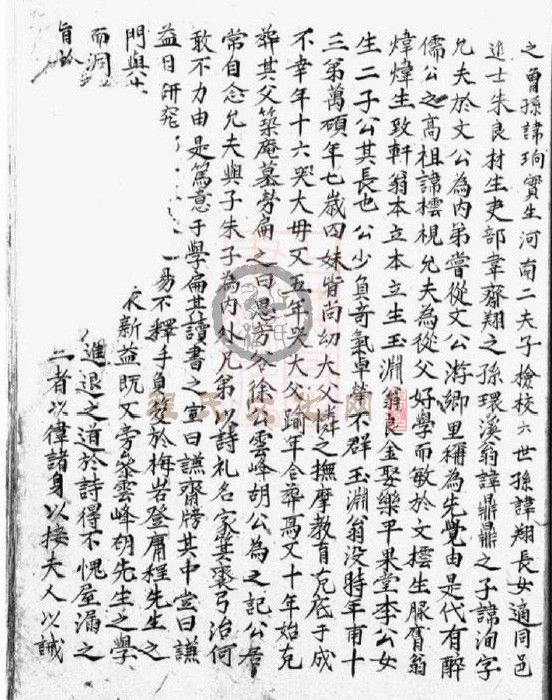 之曾孫諱珦實生河南二夫子檢校六世孫諱翔長女適同邑
進士朱良材生吏部韋齋翔之孫環溪翁諱鼎鼎之子諱洵字
允夫於文公為內弟嘗從文公游鄉里稱為先覺由是代有醇
儒公之高祖諱橒視允夫為從父好學而敏於文橒生服膺翁
煒煒生致軒翁本立本立生玉淵翁金娶樂平果堂李公女
生二子公其長也公少負奇氣卓犖不群玉淵翁沒時年甫十
三弟萬碩年七歲四妹皆尚幼大父憐之撫摩教育克底于成
不幸年十六哭大母又五年哭大父踰年合葬焉又十年始克
葬其父築庵墓旁扁之曰思省谷徐公雲峰胡公為之記公居
常自念允夫與子朱子為內外兄弟以詩礼名家其裘弓治何
敢不力由是篤意于學扁其讀書之室曰謙齋牓其中堂曰謙
益日研究 易不釋手負笈於梅岩登庸程先生之
門與 新益既又旁參雲峰胡先生之學
而洞 進退之道於詩得不愧屋漏之
旨於 二者以律諸身以接夫人以誠
程氏文化网